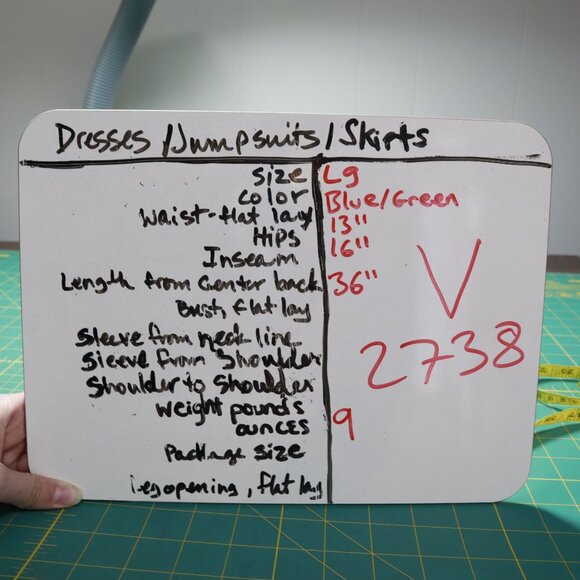 Dresses/Jumpsuits/Skirts
Size Lg
Color Blue/Green
Waist-flat lay 13"
Hips 16"
Inseam
Length from center back 36"
Bust flat lay
V
2738
Sleeve from neck line
Sleeve from Shoulder
Shoulder to Shoulder
Weight pounds
ounces 9
Package size
Legopening, flat lay